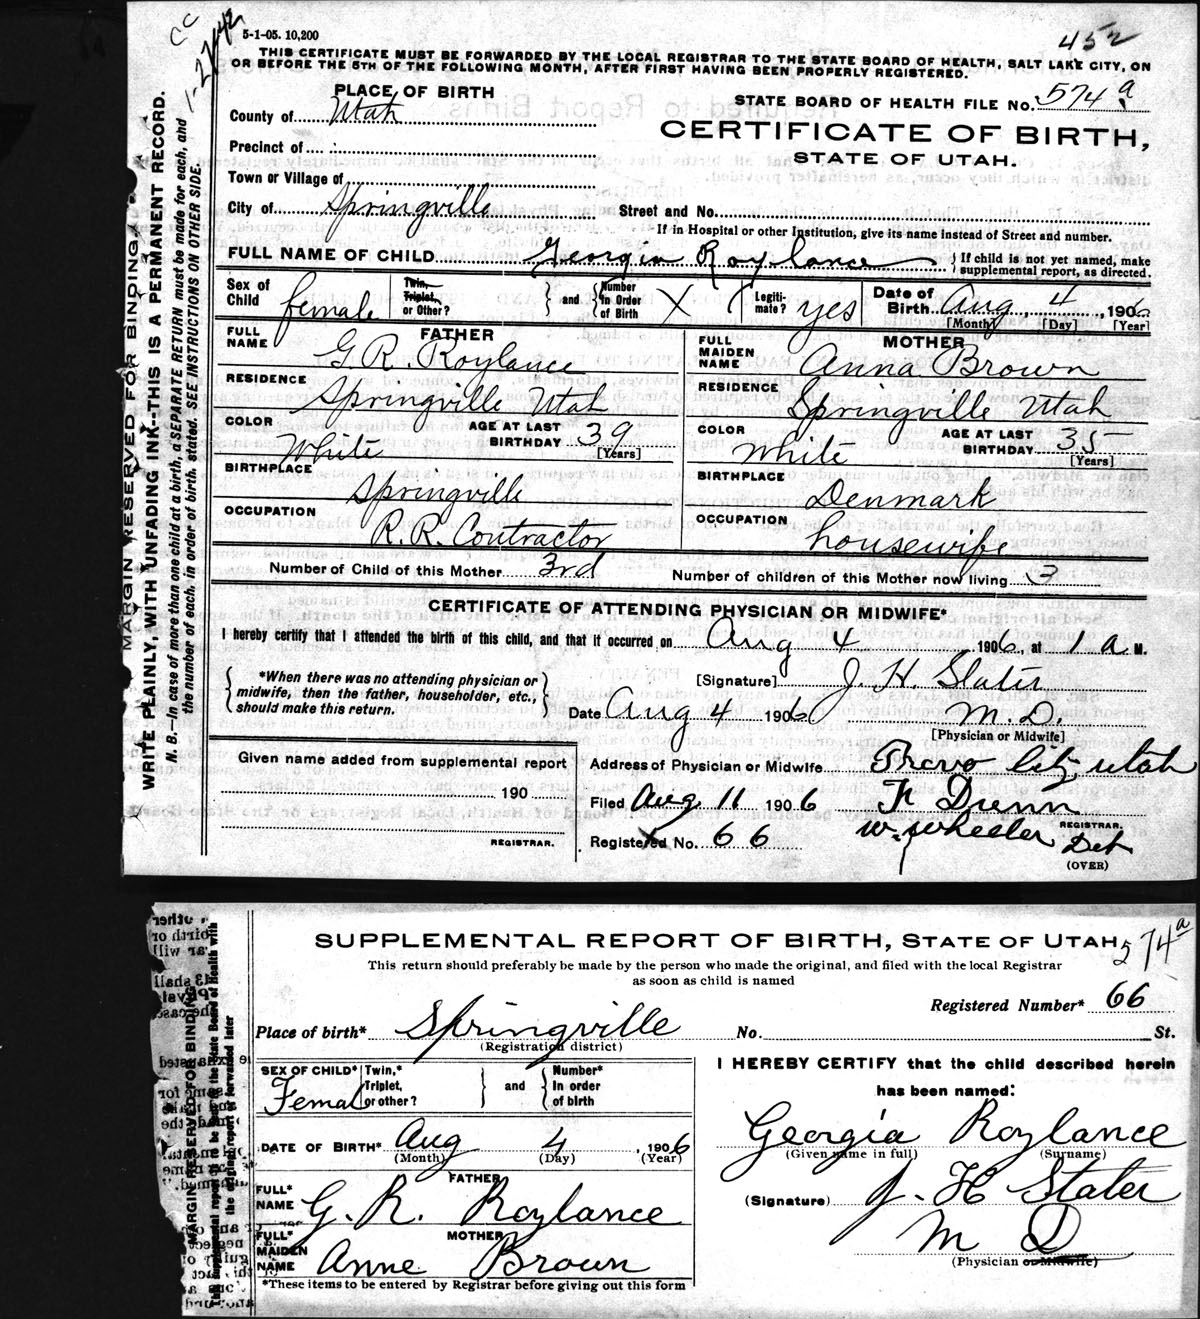 cc
1-27-42
5-1-05. 10,200
452
THIS CERTIFICATE MUST BE FORWARDED BY THE LOCAL REGISTRAR TO THE STATE BOARD OF HEALTH, SALT LAKE CITY, ON
OR BEFORE THE 5TH OF THE FOLLOWING MONTH, AFTER FIRST HAVING BEEN PROPERLY REGISTERED.
MARGIN RESERVED FOR BINDING.
WRITE PLAINLY, WITH UNFADING INK--THIS IS A PERMANENT RECORD.
N. B.--In case of more than one child at a birth, a SEPARATE RETURN must be made for each, and
the number of each, in order of birth, stated. SEE INSTRUCTIONS ON OTHER SIDE.
PLACE OF BIRTH
STATE BOARD OF HEALTH FILE NO. 574 a
County of Utah
CERTIFICATE OF BIRTH,
STATE OF UTAH.
Precinct of
Town or Village of
City of Springville Street and No.
If in Hospital or other Institution, give its name instead of Street and number.
FULL NAME OF CHILD Georgia Roylance { If child is not yet named, make
supplemental report, as directed.
Sex of Child female Twin, Triplet, or Other? } and { Number in Order of Birth X Legiti-mate? yes Date of Birth Aug 4, 1906
[Month] [Day] [Year]
FATHER MOTHER
FULL NAME G. R. Roylance FULL MAIDEN NAME Anna Brown
RESIDENCE Springville Utah RESIDENCE Springville Utah
COLOR White AGE AT LAST BIRTHDAY 39 [Years] COLOR White AGE AT LAST BIRTHDAY 35 [Years]
BIRTHPLACE Springville BIRTHPLACE Denmark
OCCUPATION R. R. Contractor OCCUPATION housewife
Number of Child of this Mother 3rd Number of children of this Mother now living 3
CERTIFICATE OF ATTENDING PHYSICIAN OR MIDWIFE*
I hereby certify that I attended the birth of this child, and that it occurred on Aug 4 1906, at 1 a M.
{ *When there was no attending physician or
midwife, then the father, householder, etc.,
should make this return. }
[Signature] J. H. Slater
Date Aug 4 1906 M. D.
[Physician or Midwife]
Given name added from supplemental report
190
REGISTRAR.
Address of Physician or Midwife Provo City, Utah
Filed Aug 11 1906 F. Dunn
Registered No. 66 W. Wheeler REGISTRAR. Det
(OVER)
SUPPLEMENTAL REPORT OF BIRTH, STATE OF UTAH 574 a
This return should preferably be made by the person who made the original, and filed with the local Registrar
as soon as child is named
Registered Number* 66
Place of birth* Springville No. St.
(Registration district)
MARGIN RESERVED FOR BINDING
SEX OF CHILD* Female Twin,* Triplet, or other? } and { Number* in order of birth
I HEREBY CERTIFY that the child described herein
has been named:
DATE OF BIRTH* Aug 4, 1906
(Month) (Day) (Year)
Georgia Roylance
(Given name in full) (Surname)
FATHER
FULL* NAME G. R. Roylance
(Signature) J. H. Slater
M D
(Physician or Midwife)
MOTHER
FULL* MAIDEN NAME Anne Brown
*These items to be entered by Registrar before giving out this form